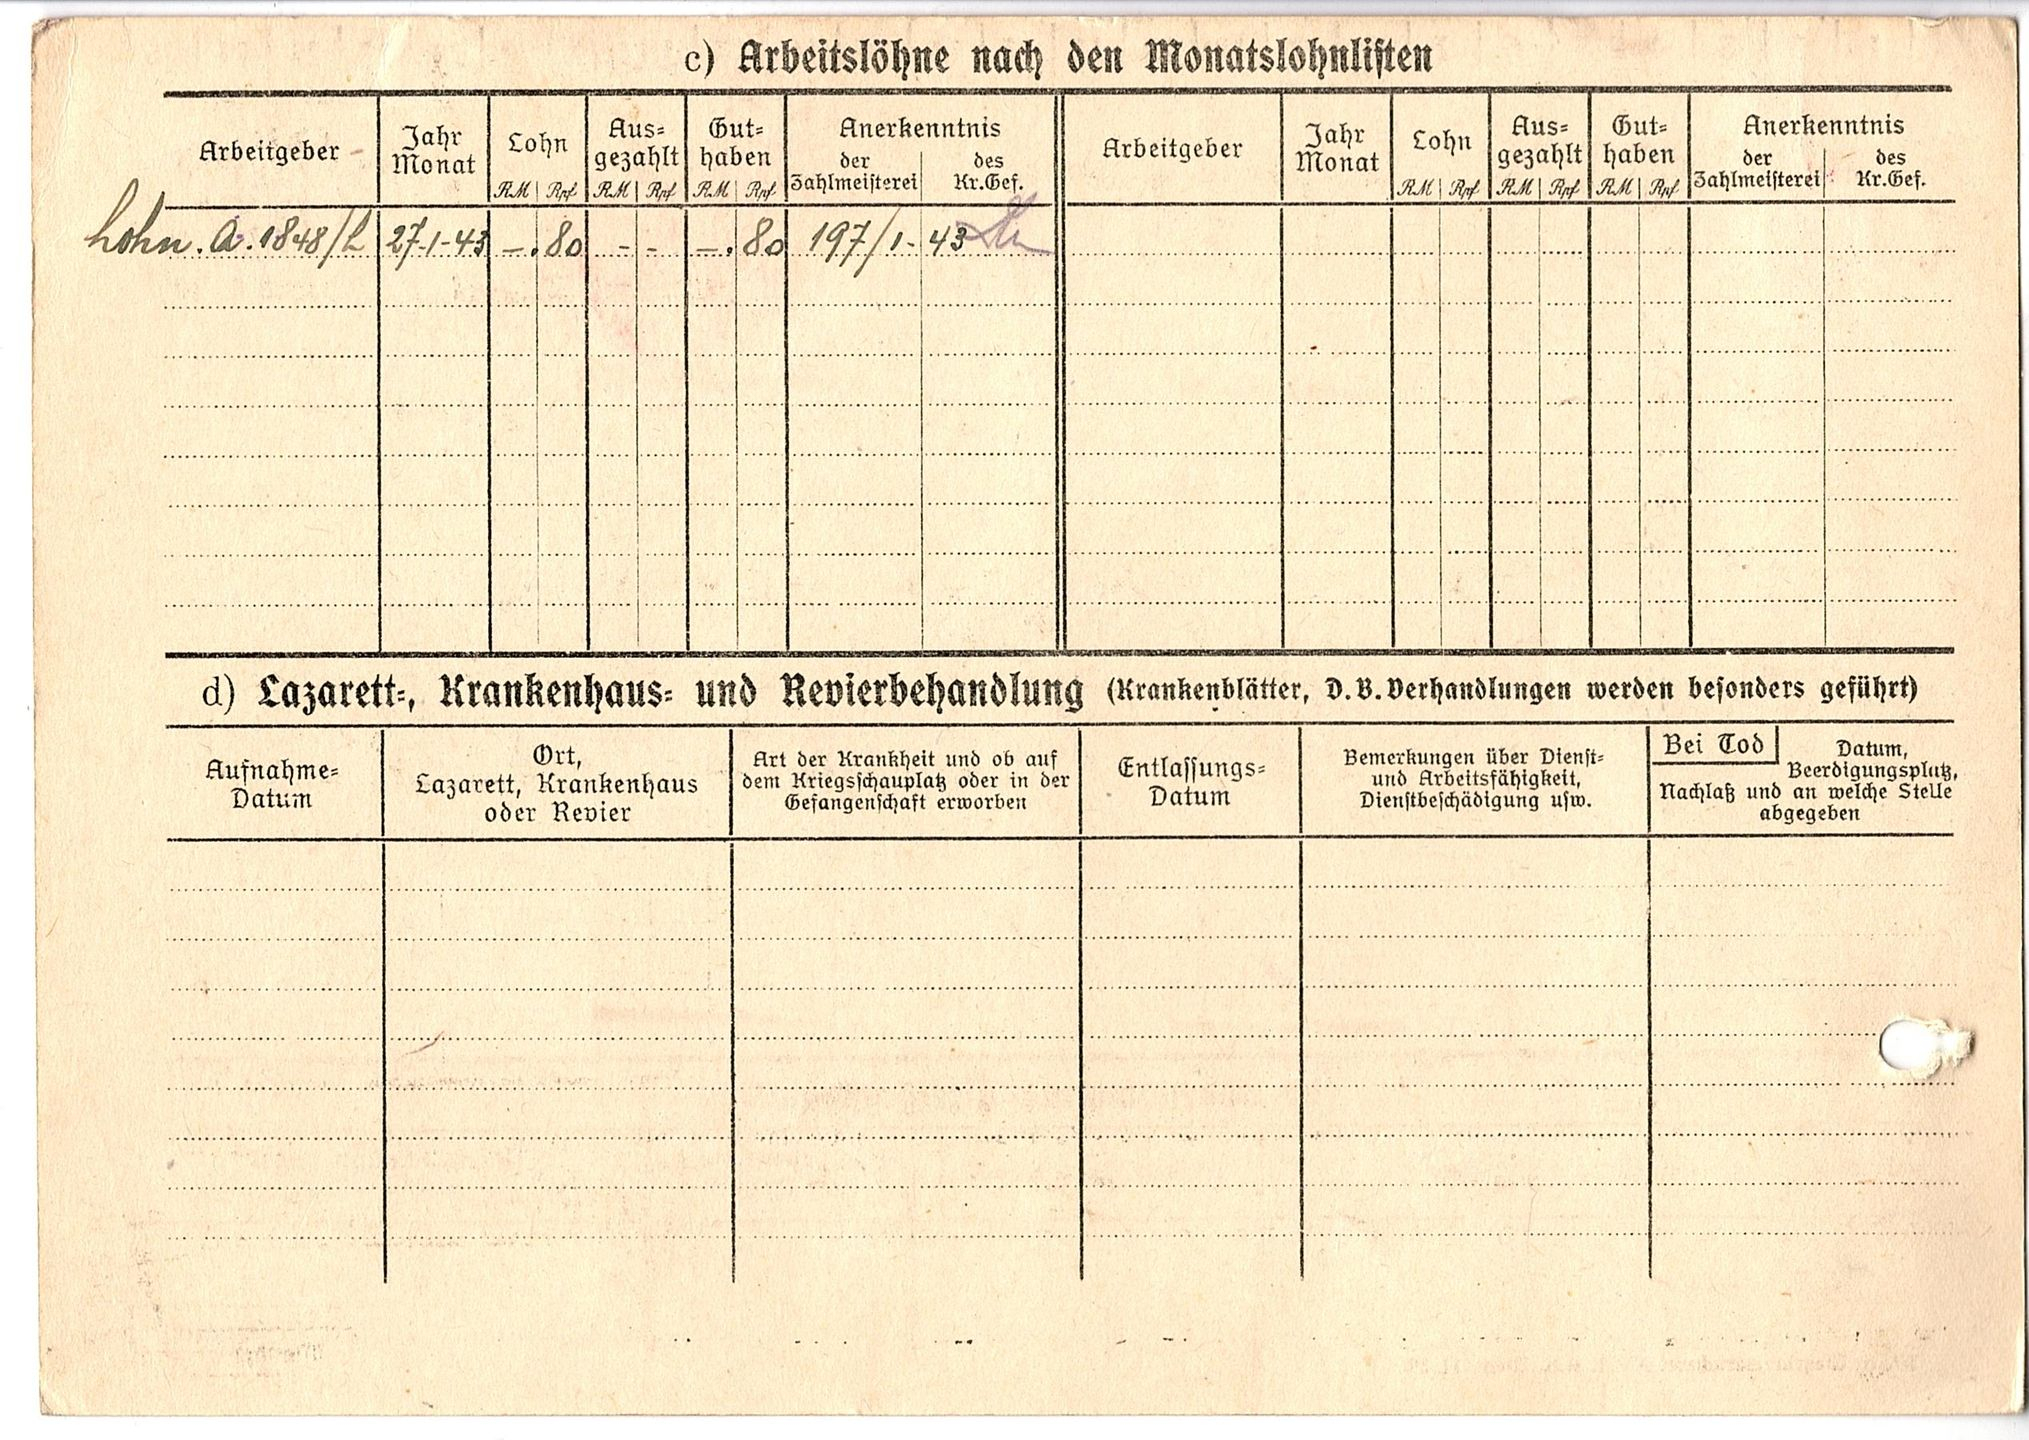 c) Arbeitslöhne nach den Monatslohnlisten
Arbeitgeber Jahr Monat Lohn Aus= gezahlt Gut= haben Anerkenntnis Arbeitgeber Jahr Monat Lohn Aus= gezahlt Gut= haben Anerkenntnis
der Zahlmeisterei des Kr.Gef. der Zahlmeisterei des Kr.Gef.
RM Rpf RM Rpf RM Rpf RM Rpf RM Rpf RM Rpf
Lohn. A. 1848/L 27-1-43 -.80 - - -.80 197/1-43
d) Lazarett=, Krankenhaus= und Revierbehandlung (Krankenblätter, D.B.Verhandlungen werden besonders geführt)
Aufnahme=
Datum
Ort,
Lazarett, Krankenhaus
oder Revier
Art der Krankheit und ob auf
dem Kriegsschauplatz oder in der
Gefangenschaft erworben
Entlassungs=
Datum
Bemerkungen über Dienst=
und Arbeitsfähigkeit,
Dienstbeschädigung usw.
Bei Tod Datum,
Beerdigungsplatz,
Nachlaß und an welche Stelle
abgegeben